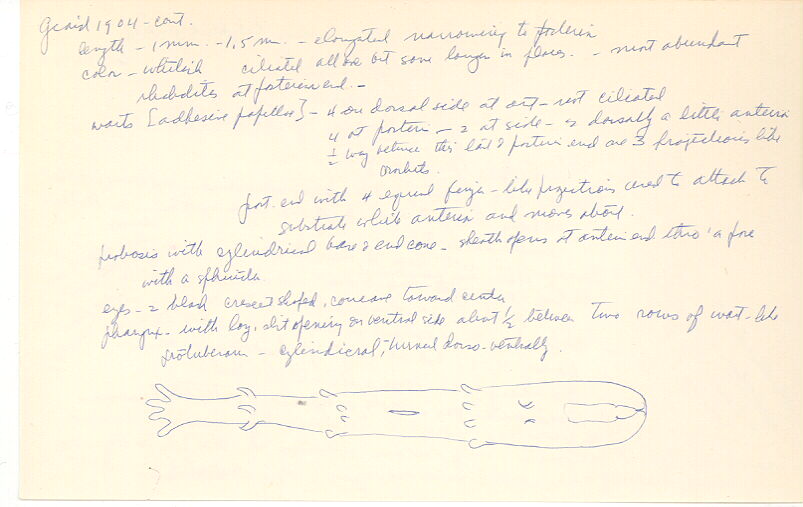 1904 - cont.
length - 1 mm. - 1.5 m. - elongated narrowing to posterior
color - whitish ciliated all over but some longer in places. - most abundant
rhabdites at posterior end. -
warts [adhesive papillae] - 4 on dorsal side at ant - not ciliated
4 at posteri - 2 at side - 2 dorsally a little anterior
½ way between this last & posterin end are 3 projections like
post. end with 4 equal finger-like projections used to attach to
substrate while anterior end moves about.
proboscis with cylindrical base & end cone - sheath opens at anterior end thro' a pore
with a sphincter
eyes - 2 black crescent shaped, concave toward center
pharynx - with long. slit opening on ventral side about ½ between two rows of wart-like
protuberances - cylindrical, turned dorso-ventrally.